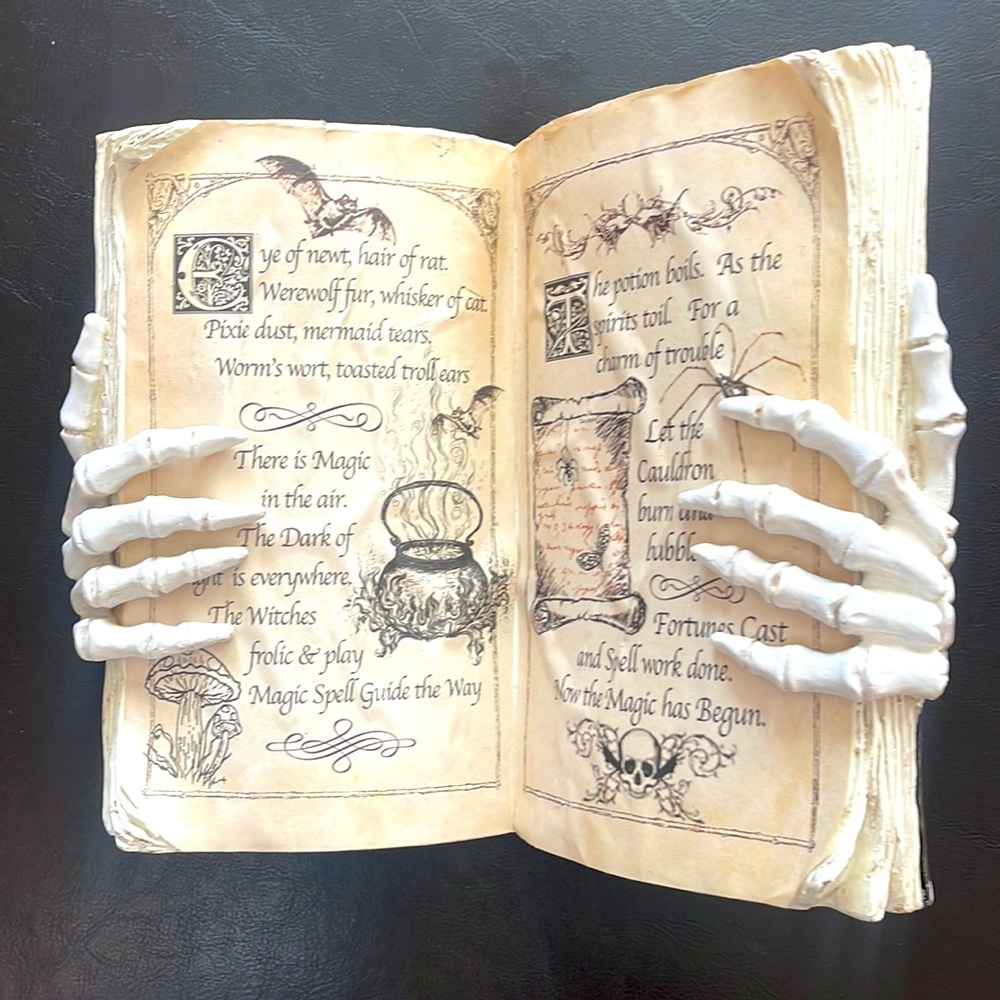 Eye of newt, hair of rat.
Werewolf fur, whisker of cat.
Pixie dust, mermaid tears.
Worm's wort, toasted troll ears
There is Magic
in the air.
The Dark of
is everywhere.
The Witches
frolic & play
Magic Spell Guide the Way
The potion boils. As the
spirits toil. For a
charm of trouble
Let the
Cauldron
burn and
bubble
Fortunes Cast
and Spell work done.
Now the Magic has Begun.